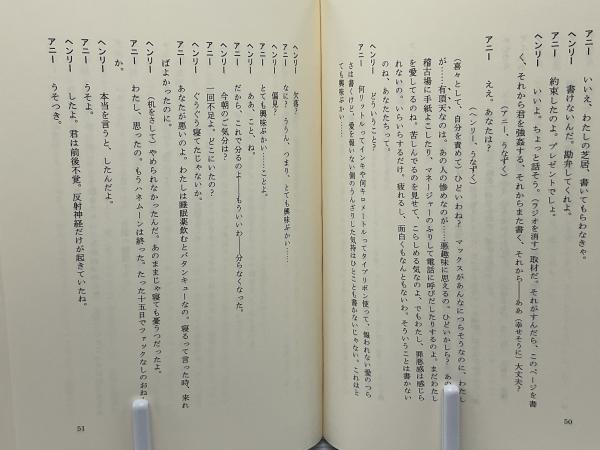 アニー　いいえ、わたしの芝居、書いてもらわなきゃ。
ヘンリー　書けないんだ。勘弁してくれよ。
アニー　約束したのよ。プレゼントでしょ。
ヘンリー　いいよ。ちょっと話そう。（ラジオを消す）取材だ。それがすんだら、このページを書
く、それから君を強姦する、それからまた書く、それから――ああ（幸せそうに）大丈夫？
（アニー、うなずく）
アニー　ええ。あなたは？
（ヘンリー、うなずく）
（喜々として、自分を責めて）ひどいわね？　マックスがあんなにつらそうなのに、わたし
が……有頂天なのは。あの人の惨めなのが……悪趣味に思えるの。ひどいかしら？　あの
稽古場に手紙よこしたり、マネージャーのふりして電話に呼びだしたりするのよ。まだわたし
を愛してるのね。苦しんでるのを見せて、こらしめる気なのよ、でもわたし、罪悪感は感じら
れないの。いらいらするだけ。疲れるし、面白くもなんともないわ。そういうことは書かない
のね、あなたたちって。
ヘンリー　どういうこと？
アニー　何リットルってインキや何キロメートルってタイプリボン使って、報われない愛のつら
さは書くけど、愛を報いない側のうんざりした気持はひとことも書かないじゃない。これはと
ても興味ぶかい……
50
ヘンリー　欠落？
アニー　なに？　ううん、つまり、とても興味ぶかい……
ヘンリー　偏見？
アニー　とても興味ぶかい……ことよ。
ヘンリー　ああ、こと、ね。
アニー　だから、これで分るのよ――もういいわ――分らなくなった。
ヘンリー　今朝のご気分は？
アニー　一回不足よ。どこにいたの？
ヘンリー　ぐうぐう寝てたじゃないか。
アニー　あなたが悪いのよ。わたしは睡眠薬飲むとバタンキューなの。寝るって言った時、来れ
ばよかったのに。
ヘンリー　（机をさして）やめられなかったんだ。あのままじゃ寝ても憂うつだったよ。
アニー　わたし、思ったの。もうハネムーンは終った。たった十五日でファックなしのおね
か。
ヘンリー　本当を言うと、したんだよ。
アニー　うそよ。
ヘンリー　したよ。君は前後不覚。反射神経だけが起きていたね。
アニー　うそつき。
51